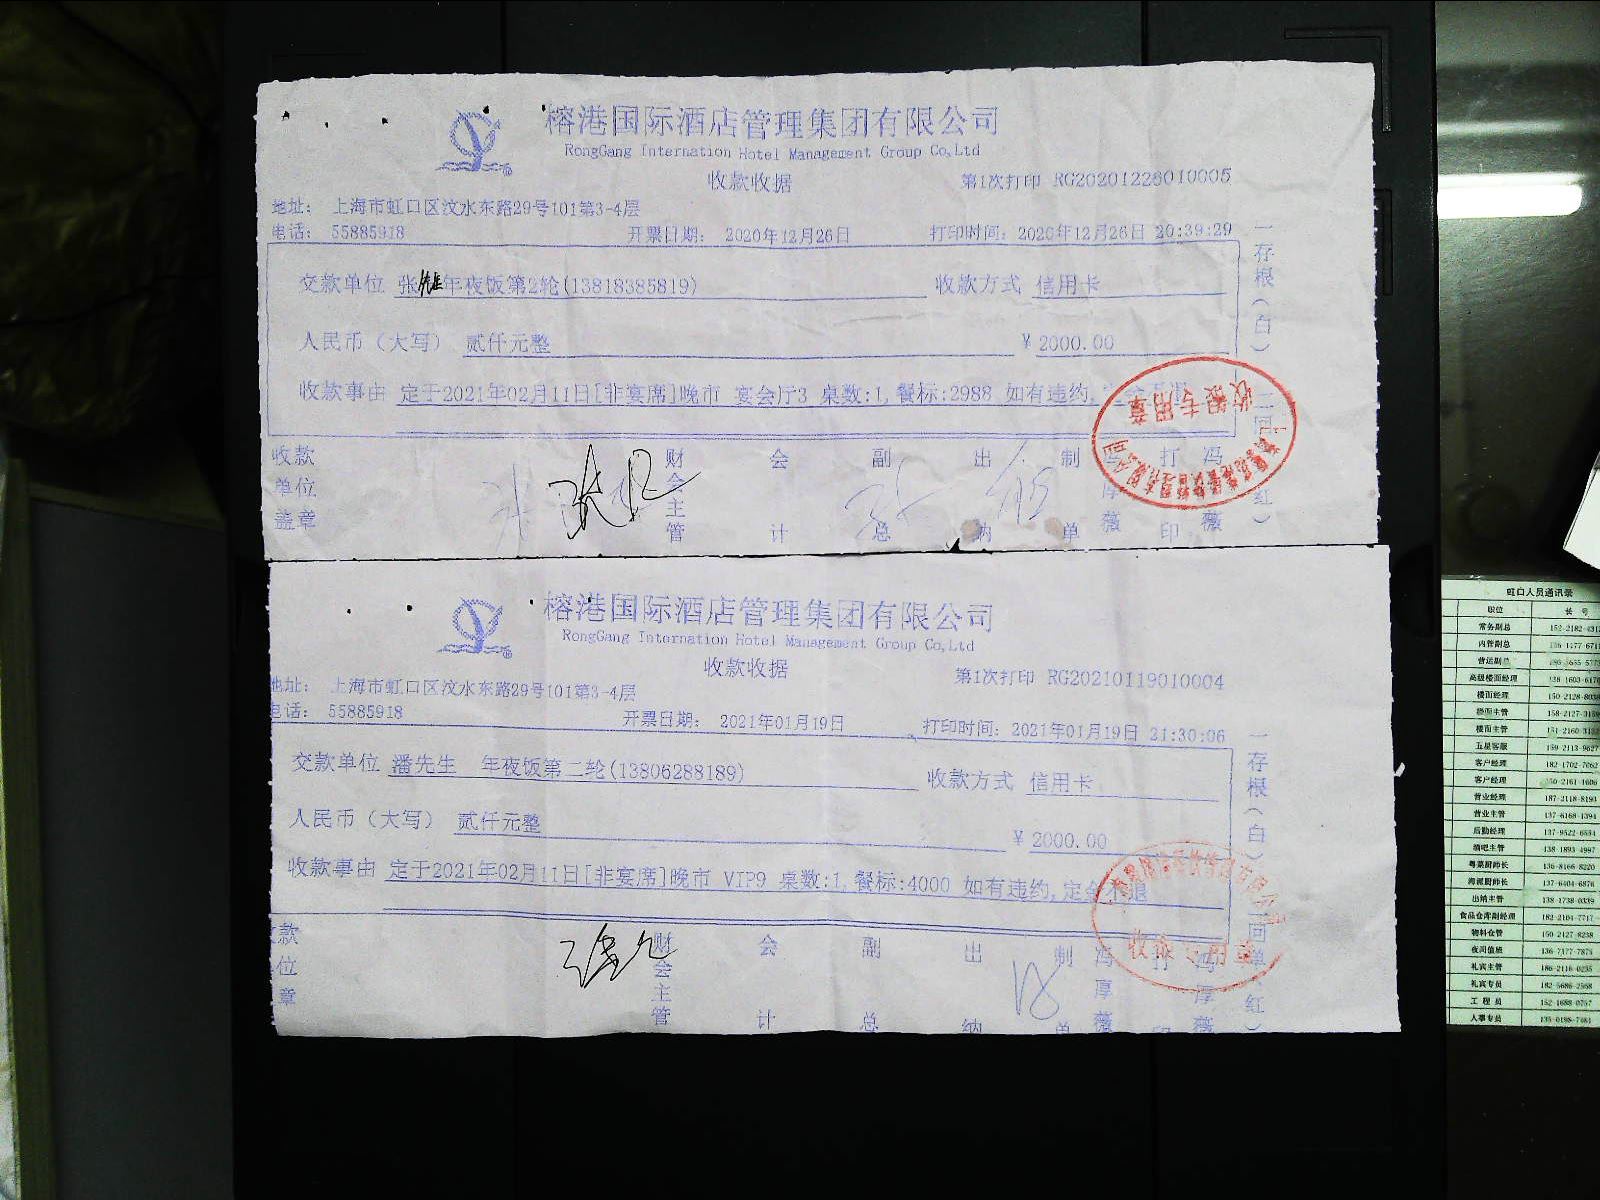 榕港国际酒店管理集团有限公司
RongGang Internation Hotel Management Group Co,Ltd
收款收据
第1次打印 RG20201226010005
地址： 上海市虹口区汶水东路29号101第3-4层
电话： 55885918
开票日期： 2020年12月26日
打印时间：2020年12月26日 20:39:29
交款单位 张先生年夜饭第2轮(13818385819)
收款方式 信用卡
人民币（大写） 贰仟元整
￥2000.00
收款事由 定于2021年02月11日[非宴席]晚市 宴会厅3 桌数:1,餐标:2988 如有违约,
一存根(白)
二回
红)
收款专用章
收款单位盖章
财会主管
会计
副总
出纳
制单
厚薇
打印
冯
薇
榕港国际酒店管理集团有限公司
RongGang Internation Hotel Management Group Co,Ltd
收款收据
第1次打印 RG20210119010004
地址： 上海市虹口区汶水东路29号101第3-4层
电话： 55885918
开票日期： 2021年01月19日
打印时间：2021年01月19日 21:30:06
交款单位 潘先生 年夜饭第二轮(13806288189)
收款方式 信用卡
人民币（大写） 贰仟元整
￥2000.00
收款事由 定于2021年02月11日[非宴席]晚市 VIP9 桌数:1,餐标:4000 如有违约,定金不退
一存根(白)
二回单
红)
款
位
章
财会主管
会计
副总
出纳
制单
冯厚薇
打印
冯厚薇
虹口人员通讯录
职位 长号
常务副总
内管副总
营运副总
高级楼面经理
楼面经理
楼面主管
楼面主管
五星客服
客户经理
客户经理
营业经理 187-2118-8193
营业主管 137-6168-1394
后勤经理 137-9522-6554
酒吧主管 138-1893-4997
粤菜厨师长 136-8166-8220
海派厨师长 137-6404-6876
出纳主管 138-1738-0339
食品仓库副经理 182-2104-7717
物料仓管 150-2127-8238
夜间值班 136-7177-7875
礼宾主管 186-2116-0235
礼宾专员 182-5686-2568
工程员 152-1688-0757
人事专员